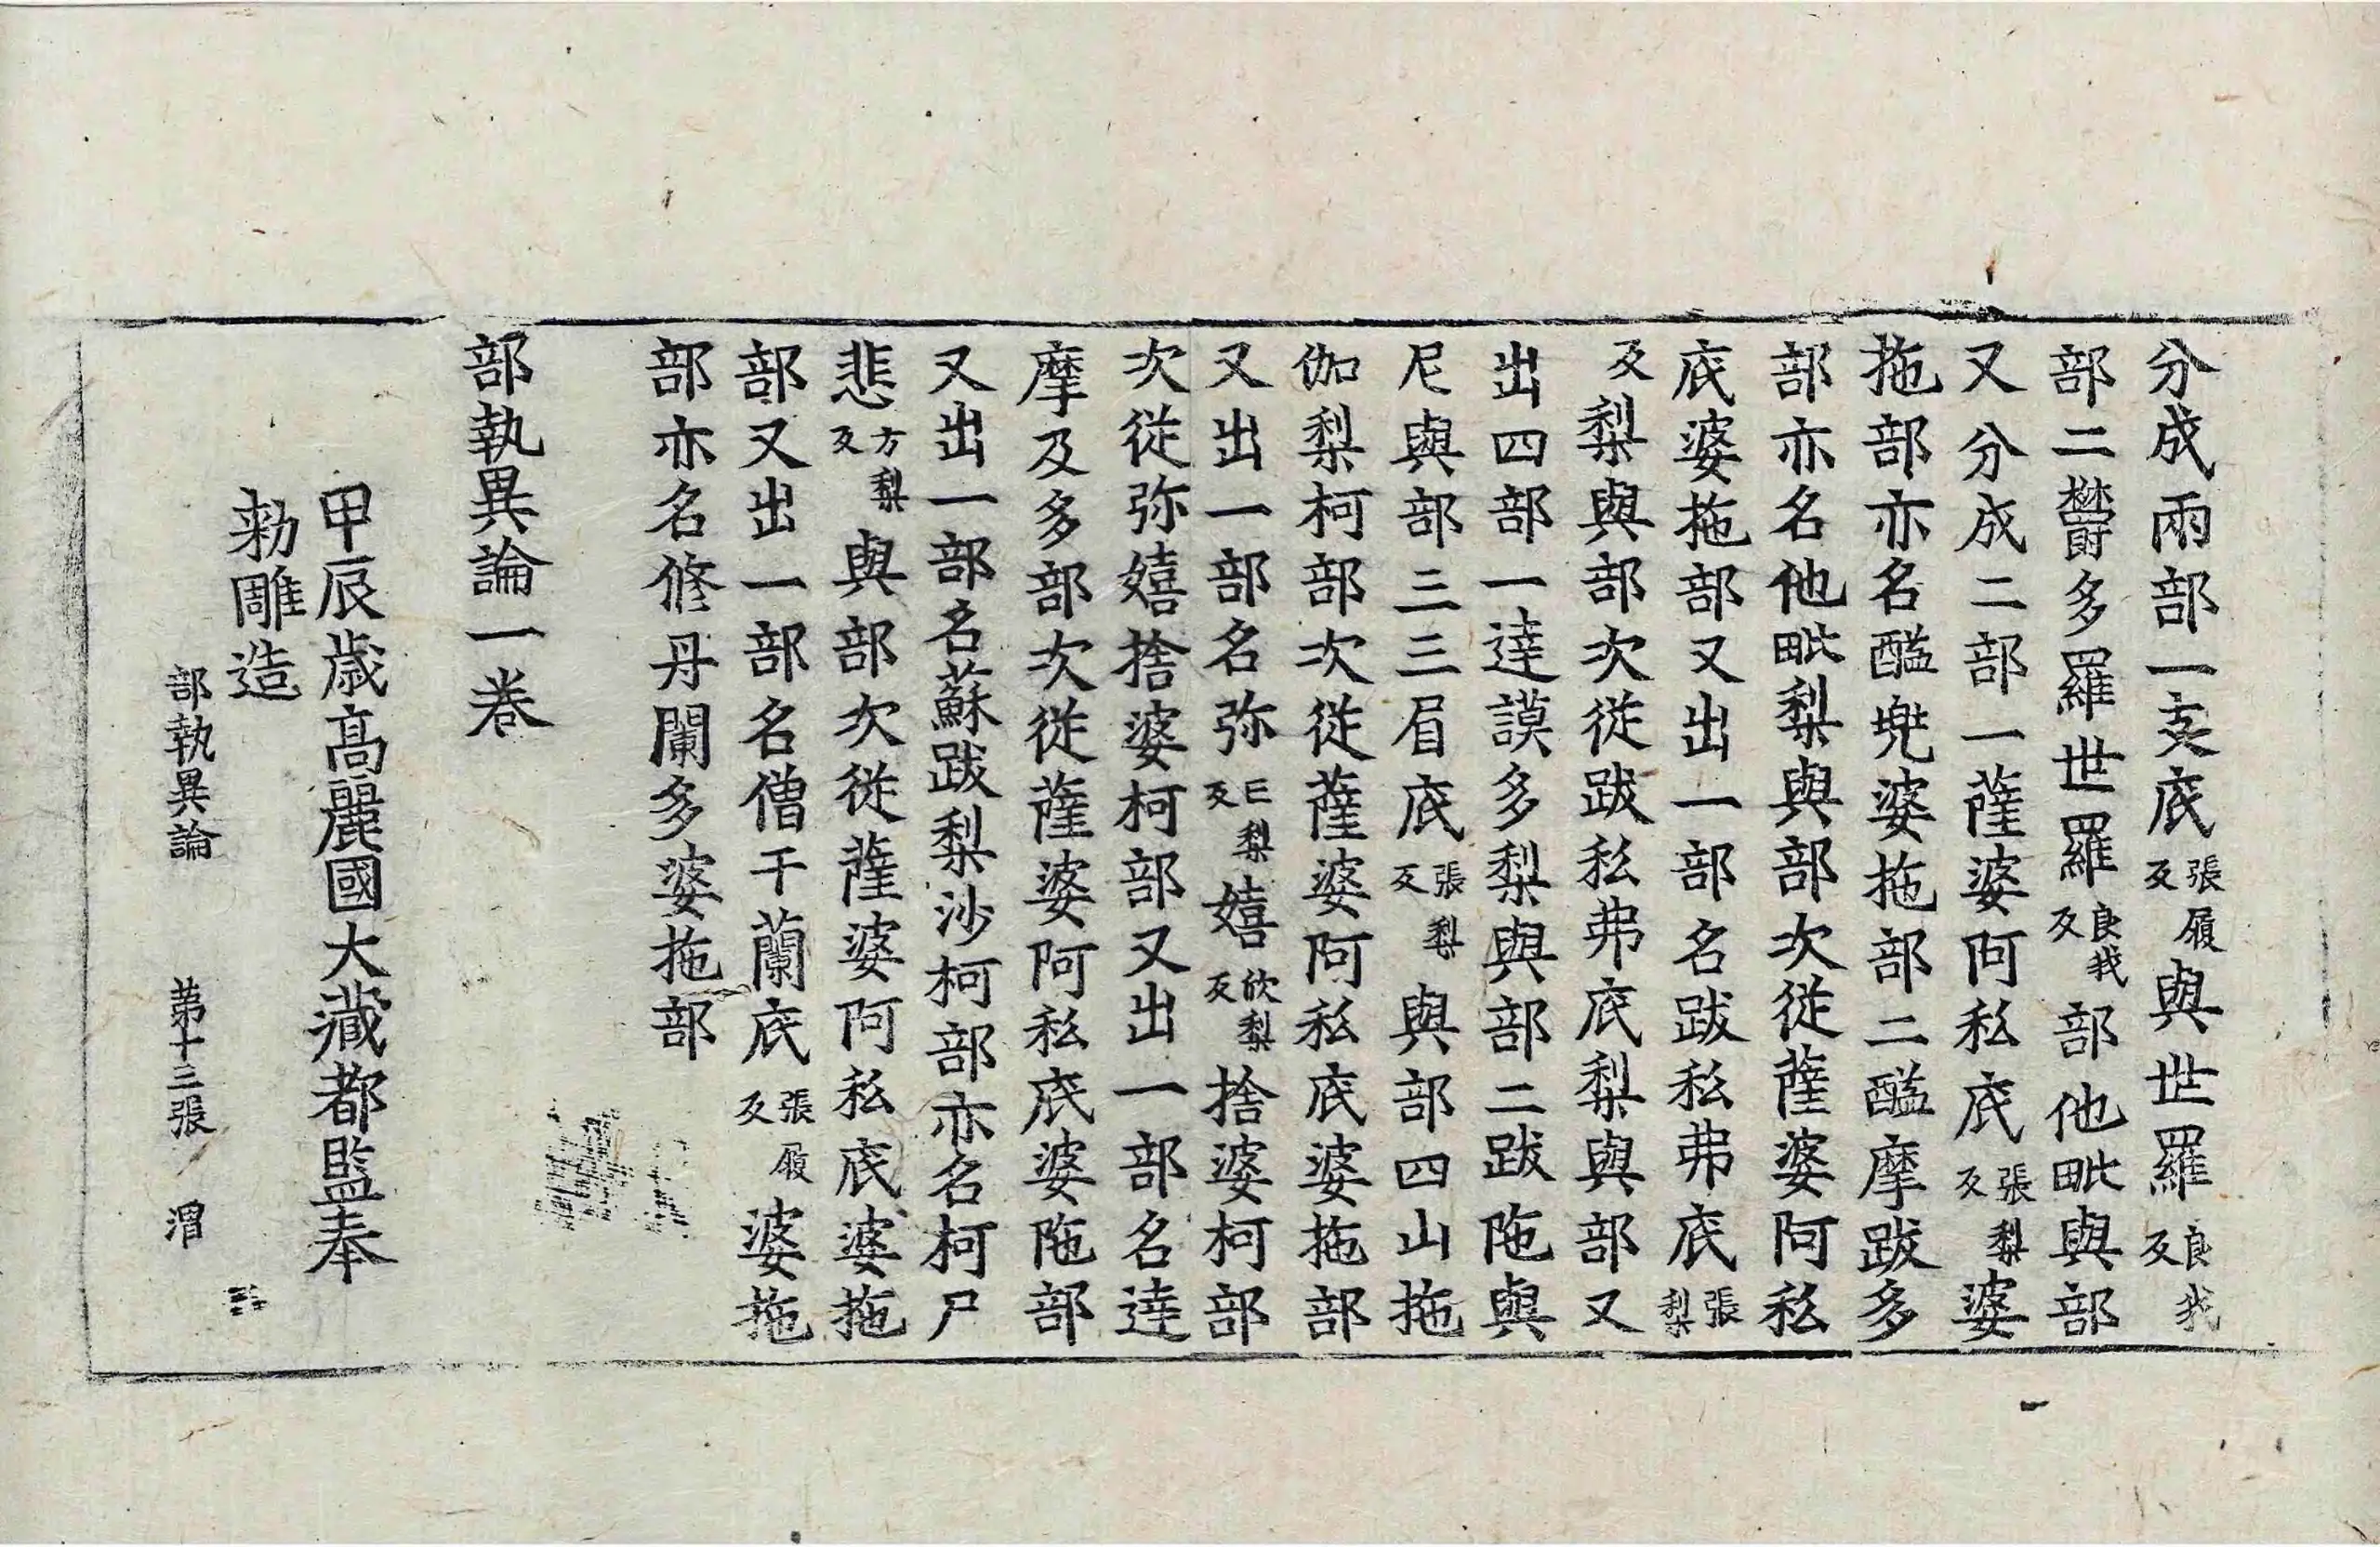 分成兩部一支底張履反與世羅良我反
部二欝多羅世羅良我反部他毗與部
又分成二部一薩婆阿私底張梨反婆
拖部亦名醯兠婆拖部二醯摩跋多
部亦名他毗梨與部次從薩婆阿私
底婆拖部又出一部名跋私弗底張梨
反梨與部次從跋私弗底梨與部又
出四部一達謨多梨與部二跋陁與
尼與部三三眉底張梨反與部四山拖
伽梨柯部次從薩婆阿私底婆拖部
又出一部名弥亡梨反嬉欣梨反捨婆柯部
次從弥嬉捨婆柯部又出一部名達
摩及多部次從薩婆阿私底婆陁部
又出一部名蘇跋梨沙柯部亦名柯尸
悲方梨反與部次從薩婆阿私底婆拖
部又出一部名僧干蘭底張履反婆拖
部亦名修丹闌多婆拖部
部執異論一卷
甲辰歲高麗國大藏都監奉
勑雕造
部執異論 第十三張 渭